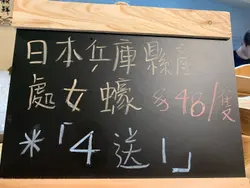 日本兵庫縣產
處女蠔 $48/隻
*「4送1」